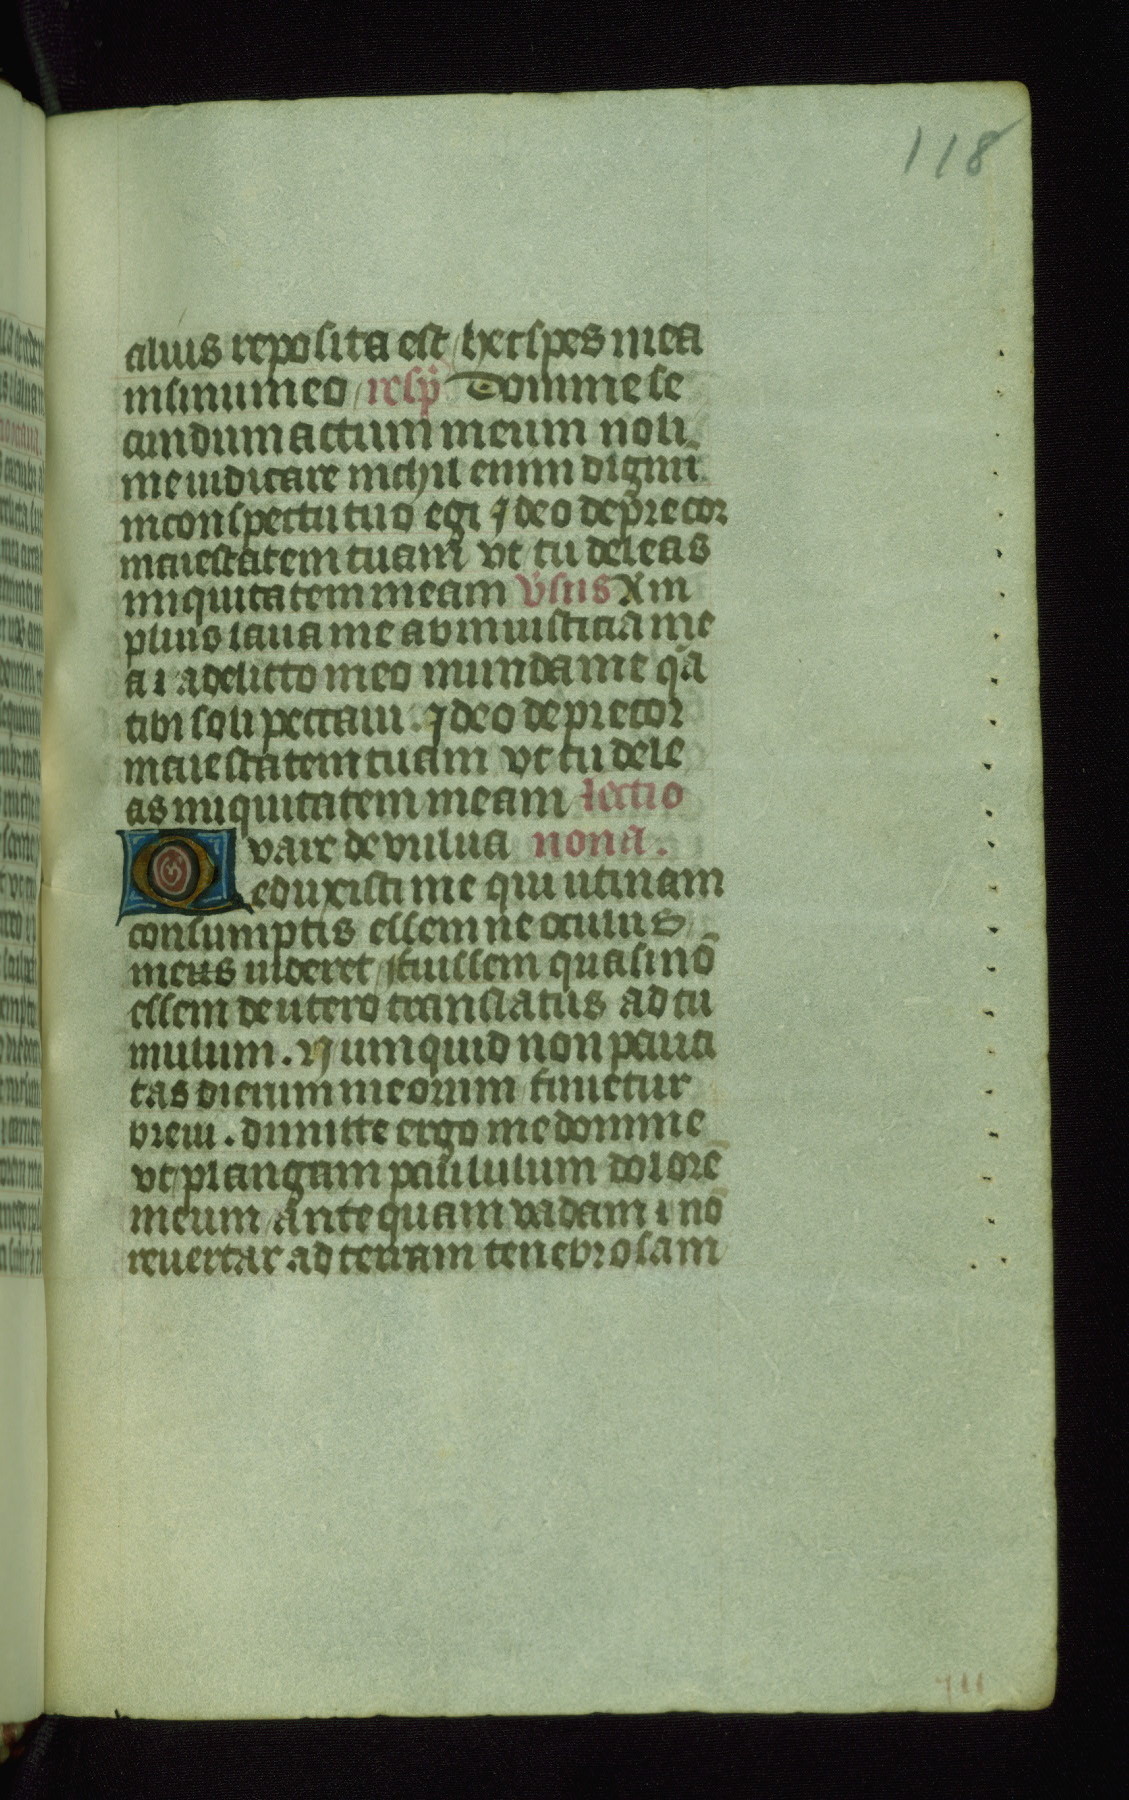 118
alius reposita est hec spes mea
in sinu meo resp̄ Domine se
cundum actum meum noli
me iudicare nichil enim dignū
in conspectu tuo egi Ideo deprecor
maiestatem tuam vt tu deleas
iniquitatem meam v̄sus Am
plius laua me ab iniusticia me
a ⁊ a delicto meo munda me q̄a
tibi soli peccaui. Ideo deprecor
maiestatem tuam vt tu dele
as iniquitatem meam lectio
Quare de vulua nona.
eduxisti me qui utinam
consumptis essem ne oculus
meus uideret fuissem quasi nō
essem de utero translatus ad tu
mulum. Numquid non pauci
tas dierum meorum finietur
breui. dimitte ergo me domine
vt plangam paululum dolorē
meum antequam vadam ⁊ nō
reuertar ad terram tenebrosam